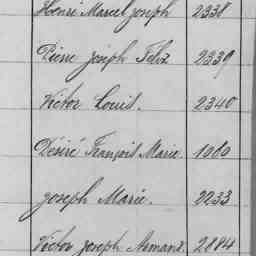 Henri Marcel Joseph 2338
Pierre Joseph Félix 2339
Victor Louis. 2340
Désiré François Marie. 1060
Joseph Marie. 2233
Victor Joseph Armand. 2884